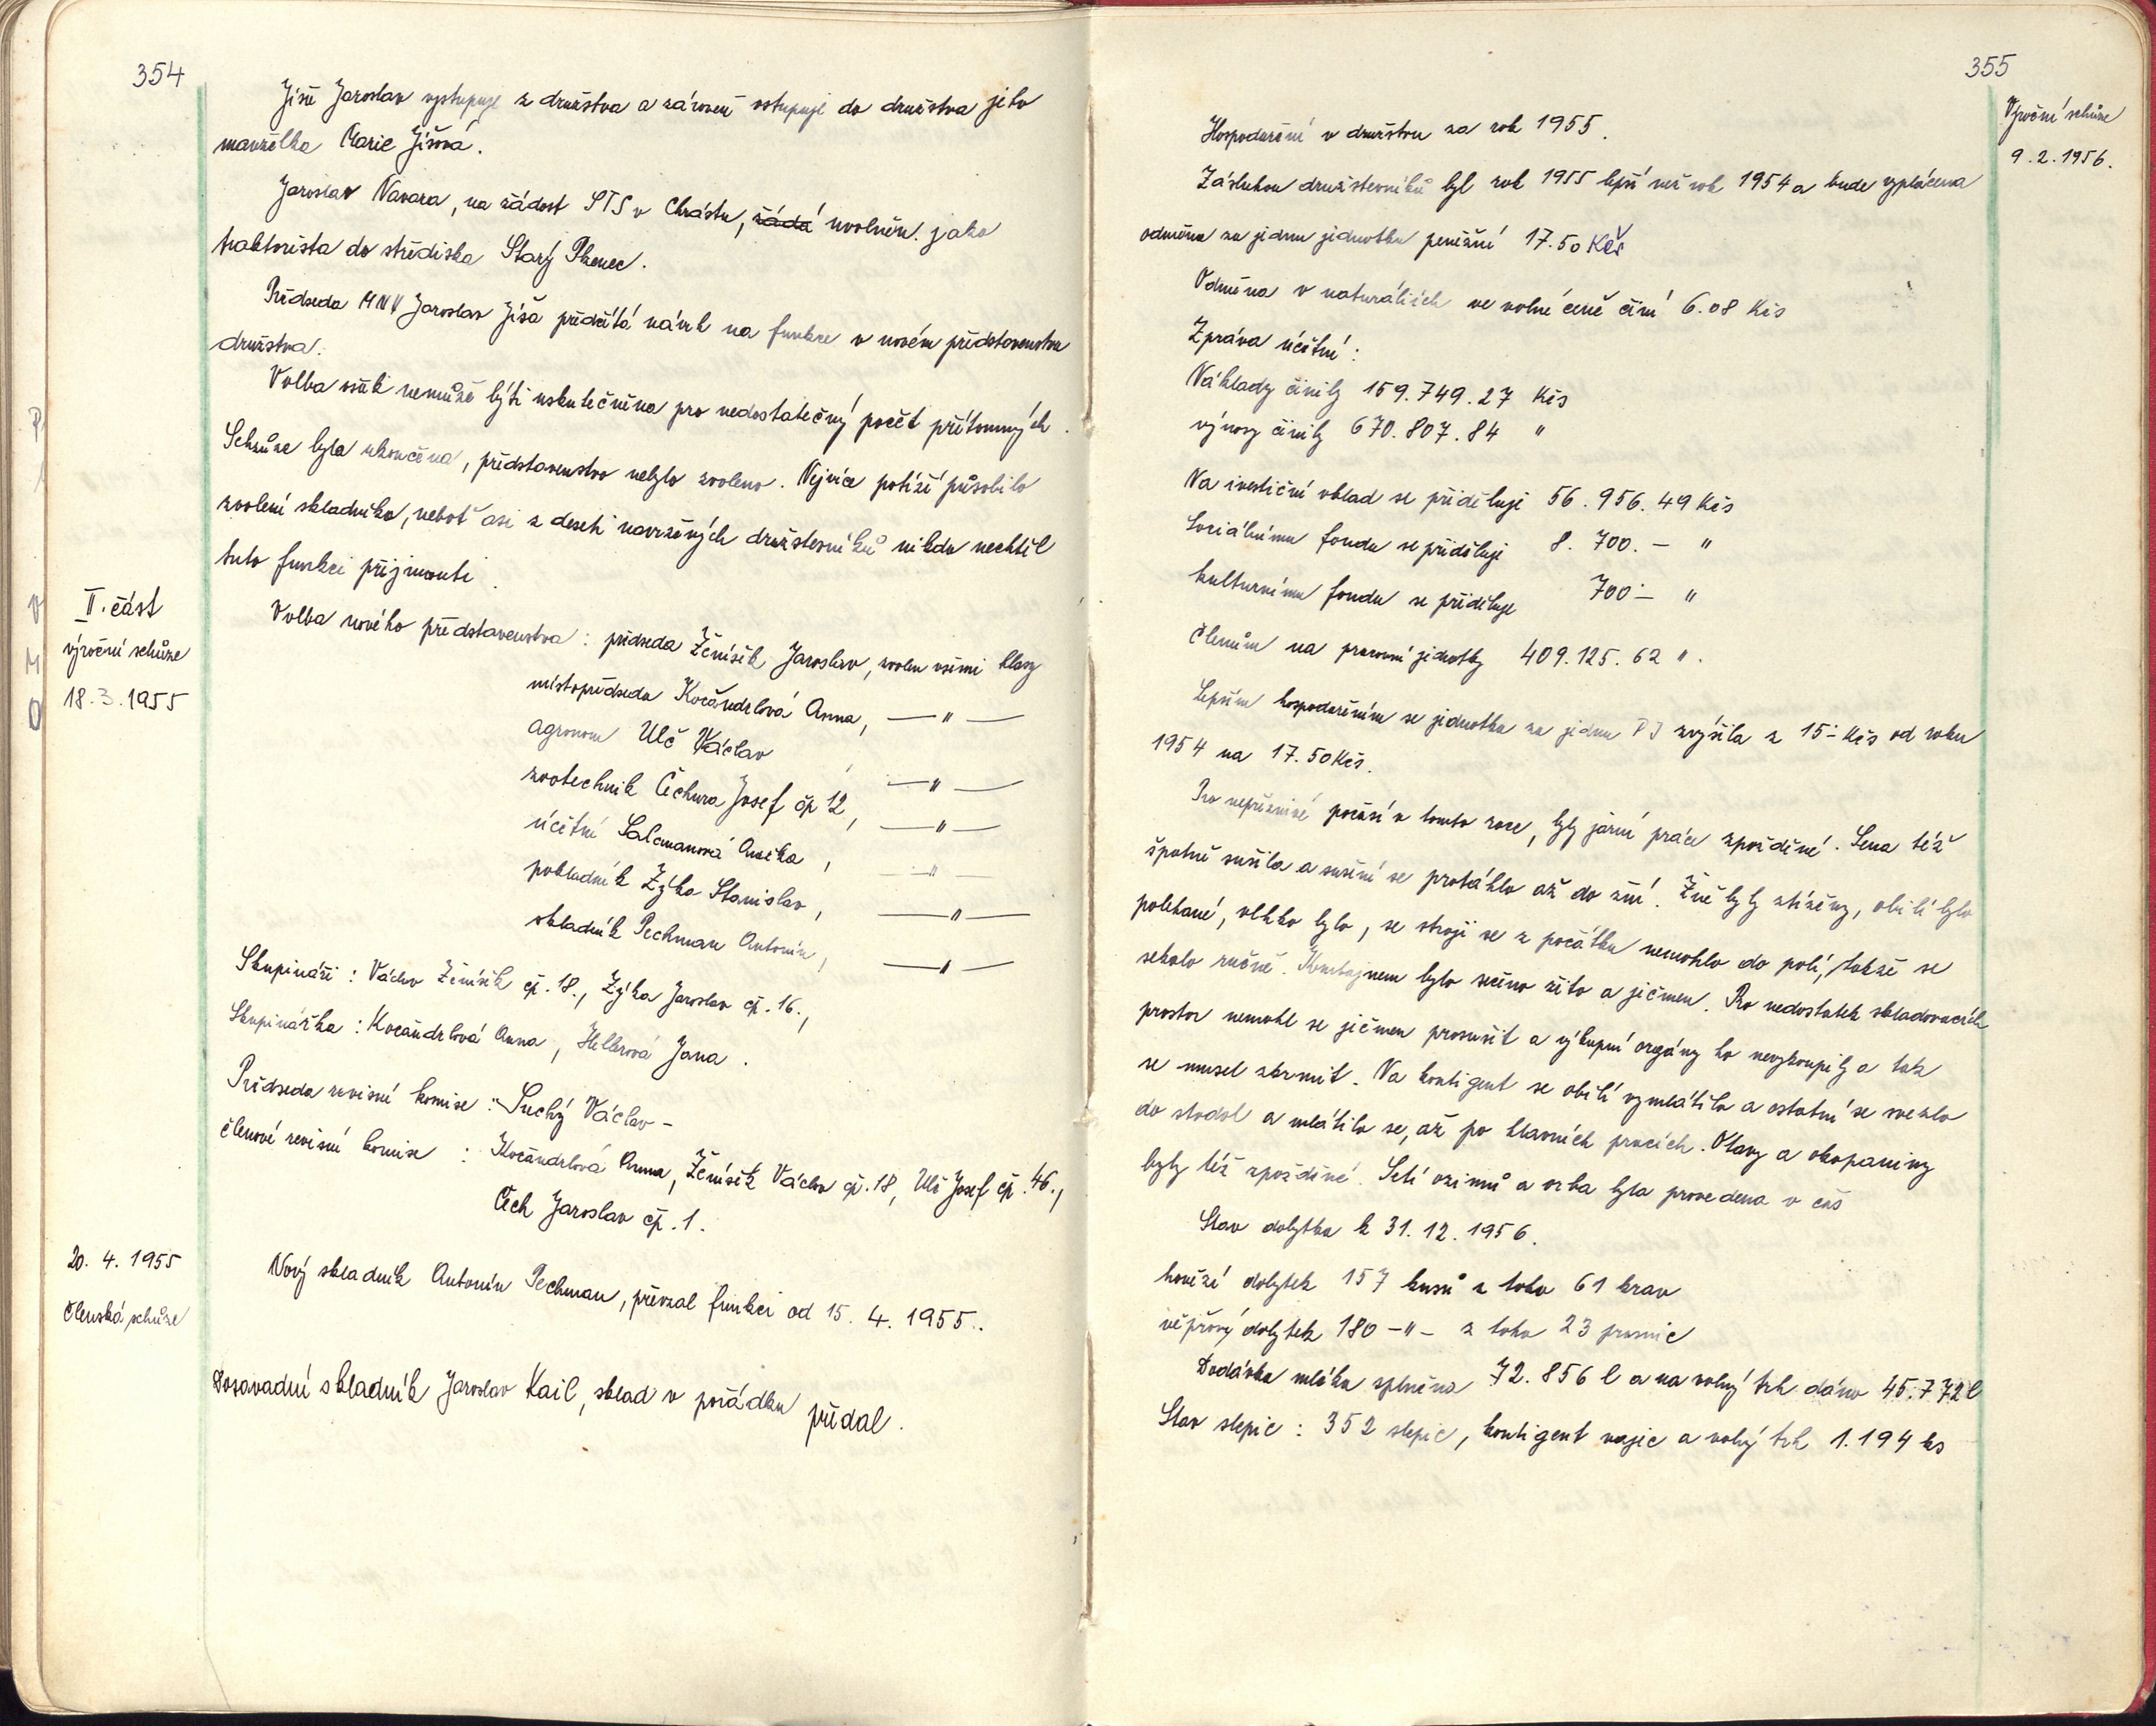 354
Jíša Jaroslav vystupuje z družstva a zároveň vstupuje do družstva jeho
manželka Marie Jíšová.
Jaroslav Navara, na žádost STS v Chrástu, žádá uvolněn. jako
traktorista do střediska Starý Plzenec.
Předseda MNV Jaroslav Jíša předčítá návrh na funkce v novém představenstvu
družstva.
Volba však nemůže býti uskutečněna pro nedostatečný počet přítomných.
Schůze byla skončena, představenstvo nebylo zvoleno. Nejvíce potíží působilo
zvolení skladníka, neboť asi z deseti navržených družstevníků nikdo nechtěl
tuto funkci přijmouti.
II. část
výroční schůze
18.3.1955
Volba nového představenstva: předseda Ženíšek Jaroslav, zvolen všemi hlasy
místopředseda Kočandrlová Anna, —"—
agronom Ulč Václav, —"—
zootechnik Čechura Josef čp 12, —"—
účetní Salcmanová Anežka, —"—
pokladník Zýka Stanislav, —"—
skladník Pechman Antonín, —"—
Skupináři: Václav Ženíšek čp. 18., Zýka Jaroslav čp. 16.,
Skupinářka: Kočandrlová Anna, Hellerová Jana.
Předseda revisní komise: Suchý Václav –
členové revisní komise : Kočandrlová Anna, Ženíšek Václav čp. 18, Ulč Josef čp. 46.,
Čech Jaroslav čp. 1.
20. 4. 1955
členská schůze
Nový skladník Antonín Pechman, převzal funkci od 15. 4. 1955..
Dosavadní skladník Jaroslav Kail, sklad v pořádku předal.
355
Výroční schůze
9.2.1956.
Hospodaření v družstvu za rok 1955.
Zásluhou družstevníků byl rok 1955 lepší než rok 1954 a bude vyplácena
odměna za jednu jednotku peněžní 17.50 Kčs
Odměna v naturáliích ve volné ceně činí 6.08 Kčs
Zpráva účetní:
Náklady činily 159.749.27 Kčs
výnosy činily 670.807.84 "
Na ivestiční vklad se přiděluje 56.956.49 Kčs
Sociálnímu fondu se přiděluje 8.700.– "
kulturnímu fondu se přiděluje 700.– "
členům na pracovní jednotky 409.125.62 ".
Lepším hospodařením se jednotka za jednu PJ zvýšila z 15.– Kčs od roku
1954 na 17.50 Kčs.
Pro nepříznivé počasí v tomto roce, byly jarní práce zpožděné. Sena též
špatně sušila a sušení se protáhlo až do žní. Žně byly ztíženy, obilí bylo
polehané, vlhko bylo, se stroji se z počátku nemohlo do polí, takže se
sekalo ručně. Kombajnem bylo sečeno žito a ječmen. Pro nedostatek skladovacích
prostor nemohl se ječmen prosušit a výkupní orgány ho nevykoupily a tak
se musel zkrmit. Na kontigent se obilí vymlátilo a ostatní se svezlo
do stodol a mlátilo se, až po hlavních pracích. Otavy a okopaniny
byly též zpožděné. Setí ozimů a orba byla provedena v čas
Stav dobytka k 31.12.1956.
hovězí dobytek 157 kusů z toho 61 krav
vepřový dobytek 180 –"– z toho 23 prasnic
Dodávka mléka splněna 72.856 l a na volný trh dáno 45.772 l
Stav slepic: 352 slepic, kontigent vajec a volný trh 1.194 ks